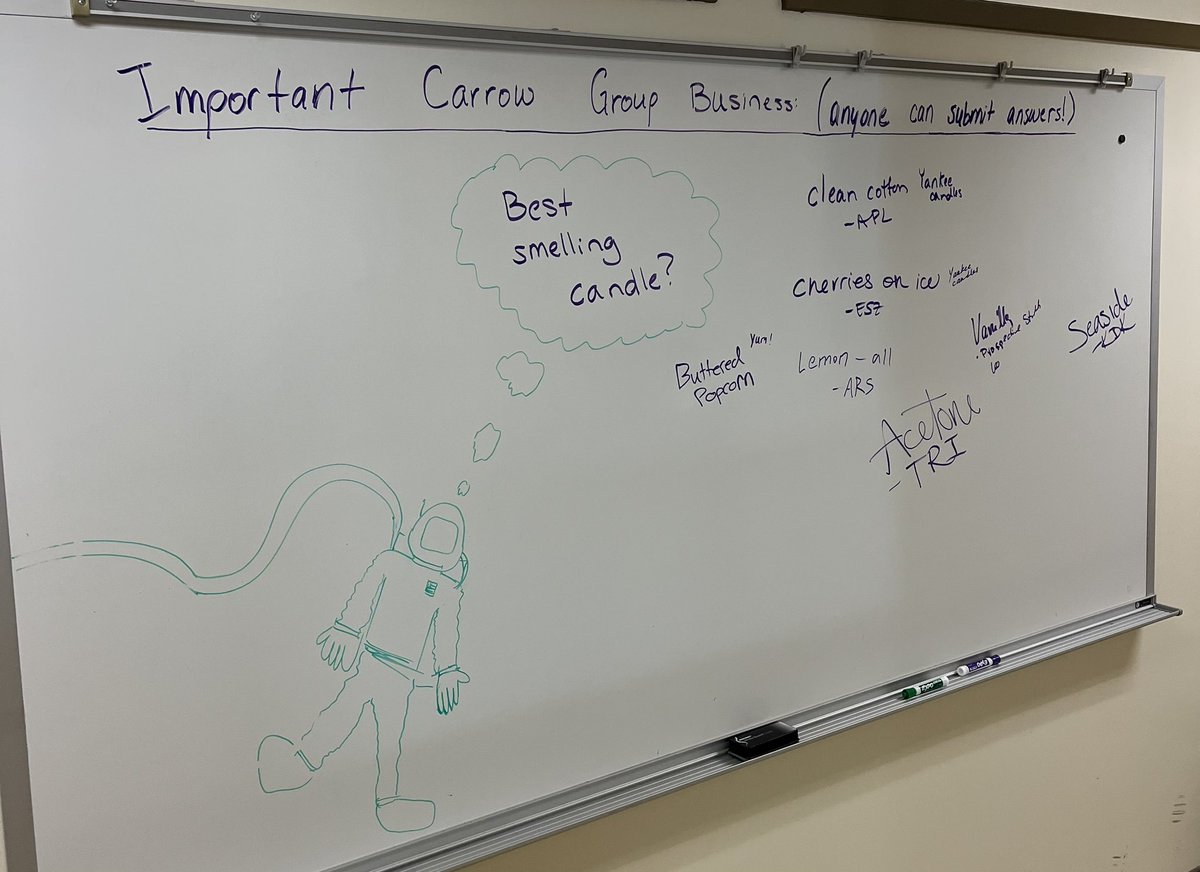 Important Carrow Group Business: (anyone can submit answers!)
Best
smelling
candle?
clean cotton Yankee
candles
-APL
cherries on ice Yankee
candles
-ESZ
Buttered Yum!
Popcorn
Lemon - all
-ARS
Vanilla
- Prospective
Seaside
-KDK
Acetone
- TRI
EXPO
EXPO